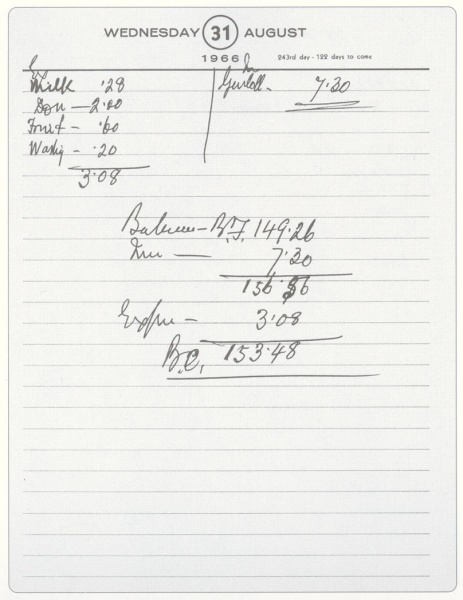 WEDNESDAY 31 AUGUST
1966 243rd day - 122 days to come
Milk .28
Son — 2.00
Fruit - .60
Washing - .20
3.08
7.30
Balance — B.F. 149.26
7.30
156.56
Expen — 3.08
B.C. 153.48